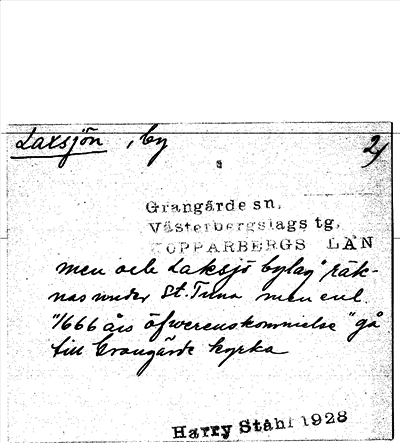 Laxsjön, by 2)
Grangärde sn,
Västerbergslags tg,
KOPPARBERGS LÄN
men och Laksjö bylag" räk-
nas under St. Tuna men enl.
"1666 års öfwerenskommelse" gå
till Grangärde kyrka
Harry Ståhl 1928